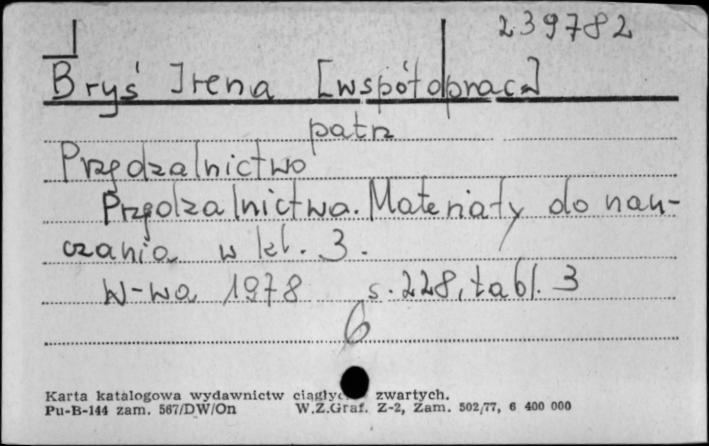 239782
Bryś Irena [współopraca]
patrz
Przędzalnictwo
Przędzalnictwo. Materiały do nau-
czania w kl. 3.
W-wa 1978 s. 228, tabl. 3
6
Karta katalogowa wydawnictw zwartych.
Pu-B-144 zam. 567/DW/On W.Z.Graf. Z-2, Zam. 502/77, 6 400 000